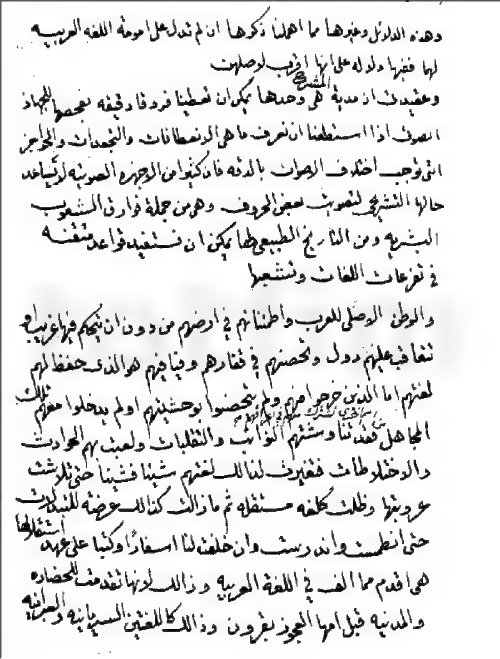 وهذه الدلائل وغيرها مما اهملنا ذكرها ان لم تدل على امومة اللغة العربيه
لها ففيها دلاله على انها اقرب لاصلهن
وعقيدتي ان مدية المشرح هي وحدها يمكن ان تعطينا فروقا دقيقه بفحصها للجهاز
الصوتي اذا استطعنا ان نعرف ما هي الانعطافات والتجعدات والحواجز
التي توجب اختلاف الاصوات بالدقه فان كثيرا من الاجهزه الصوتيه لا يساعد
حالها التشريحي لتصويت بعض الحروف وهي من جملة فوارق الشعوب
البشريه ومن التاريخ الطبيعي لها يمكن ان نستفيد قواعد متقنه
في تفرعات اللغات وتشعبها
والوطن الاصلي للعرب واطمئنانهم في ارضهم من دون ان يتحكم فيها غريب او
تتعاقب عليهم دول وتحصنهم في قفارهم وفيافيهم هو الذي حفظ لهم
لغتهم اما الذين خرجوا منهم ولم يتحصنوا بوحشيتهم او لم يدخلوا معهم تلك
المجاهل فقد شتتهم النوائب والتقلبات ولعبت بهم الحوادث
والاختلاطات فتغيرت لذلك لغتهم شيئا فشيئا حتى تلاشت
عروبتها وظلت كلغه مستقله ثم ما زالت كذلك عرضة للتبدلات
حتى انطمست واندرست وان خلفت لنا اسفارًا وكتبا على عهد استقلالها
هي اقدم مما الف في اللغة العربيه وذالك لانها تقدمت للحضاره
والمدنيه قبل امها العجوز بقرون وذالك كاللغتين السريانيه والعبرانيه